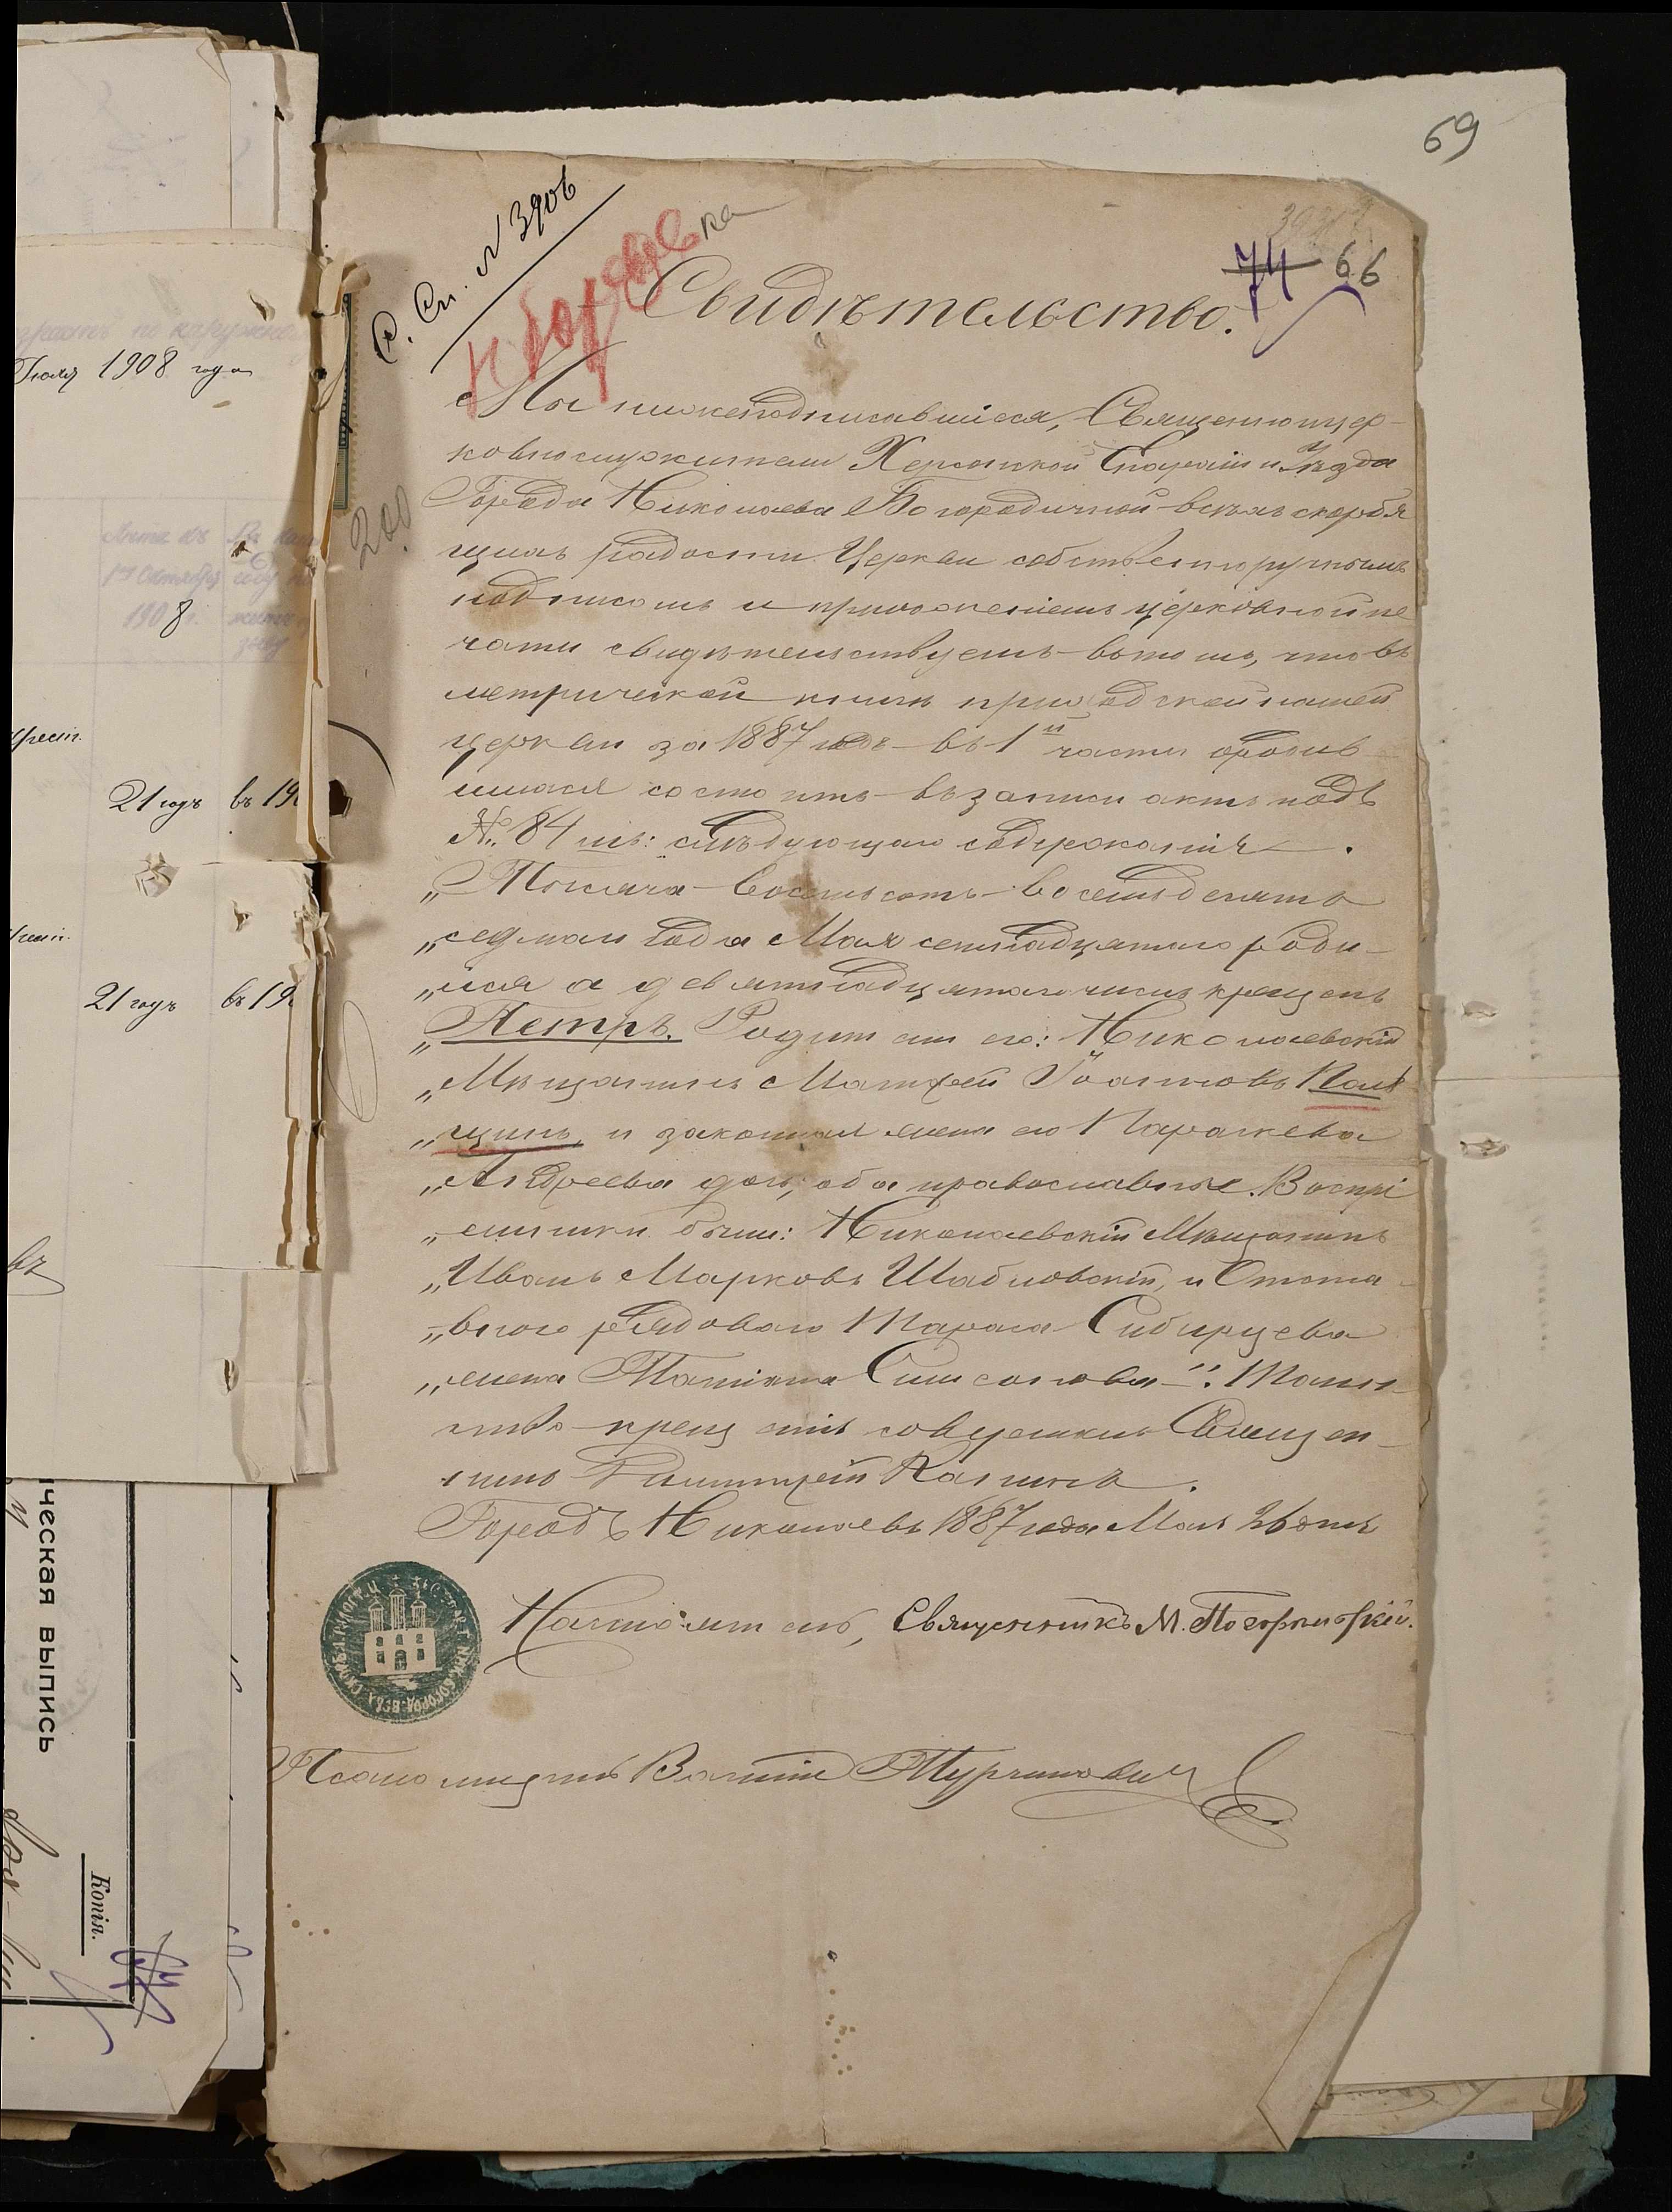 69
С. Сп. №3906
74 66
200
Свидѣтельство.
Мы нижеподписавшіеся, Священноцер-
ковнослужители Херсонской Епархіи и Уѣзда
Города Николаева Богородичной всѣхъ скорбя
щихъ радости Церкви собственноручнымъ
подписомъ и приложеніемъ церковной пе
чати свидѣтельствуемъ въ томъ, что въ
метрической книгѣ приходской нашей
церкви за 1887 годъ въ 1й части о родив
шихся состоитъ въ записи актъ подъ
№ 84 мъ: слѣдующаго содержанія.
„Тысяча восемьсотъ восемьдесятъ
„седмаго года Мая семнадцатаго роди-
„лся а девятнадцатаго числа крещенъ
„Петръ. Родители его: Николаевскій
„Мѣщанинъ Матфей Іоанновъ
„и законная жена его Параскева
„Андреева дочь, оба православные. Воспрі
„емники были: Николаевскій Мѣщанинъ
„Иванъ Марковъ Шабловскій, и Отста-
„вного рядового Тараса Сибирцева
„жена Татіана Самсонова“. Таин-
ство крещенія совершилъ Священ-
никъ
Городъ Николаевъ 1887 года Мая 26 дня
Настоятель, Священникъ М.
Псаломщикъ
Іюля 1908 года
1908 г.
21 годъ въ 19
21 годъ въ 19
ческая выпись
Копія.